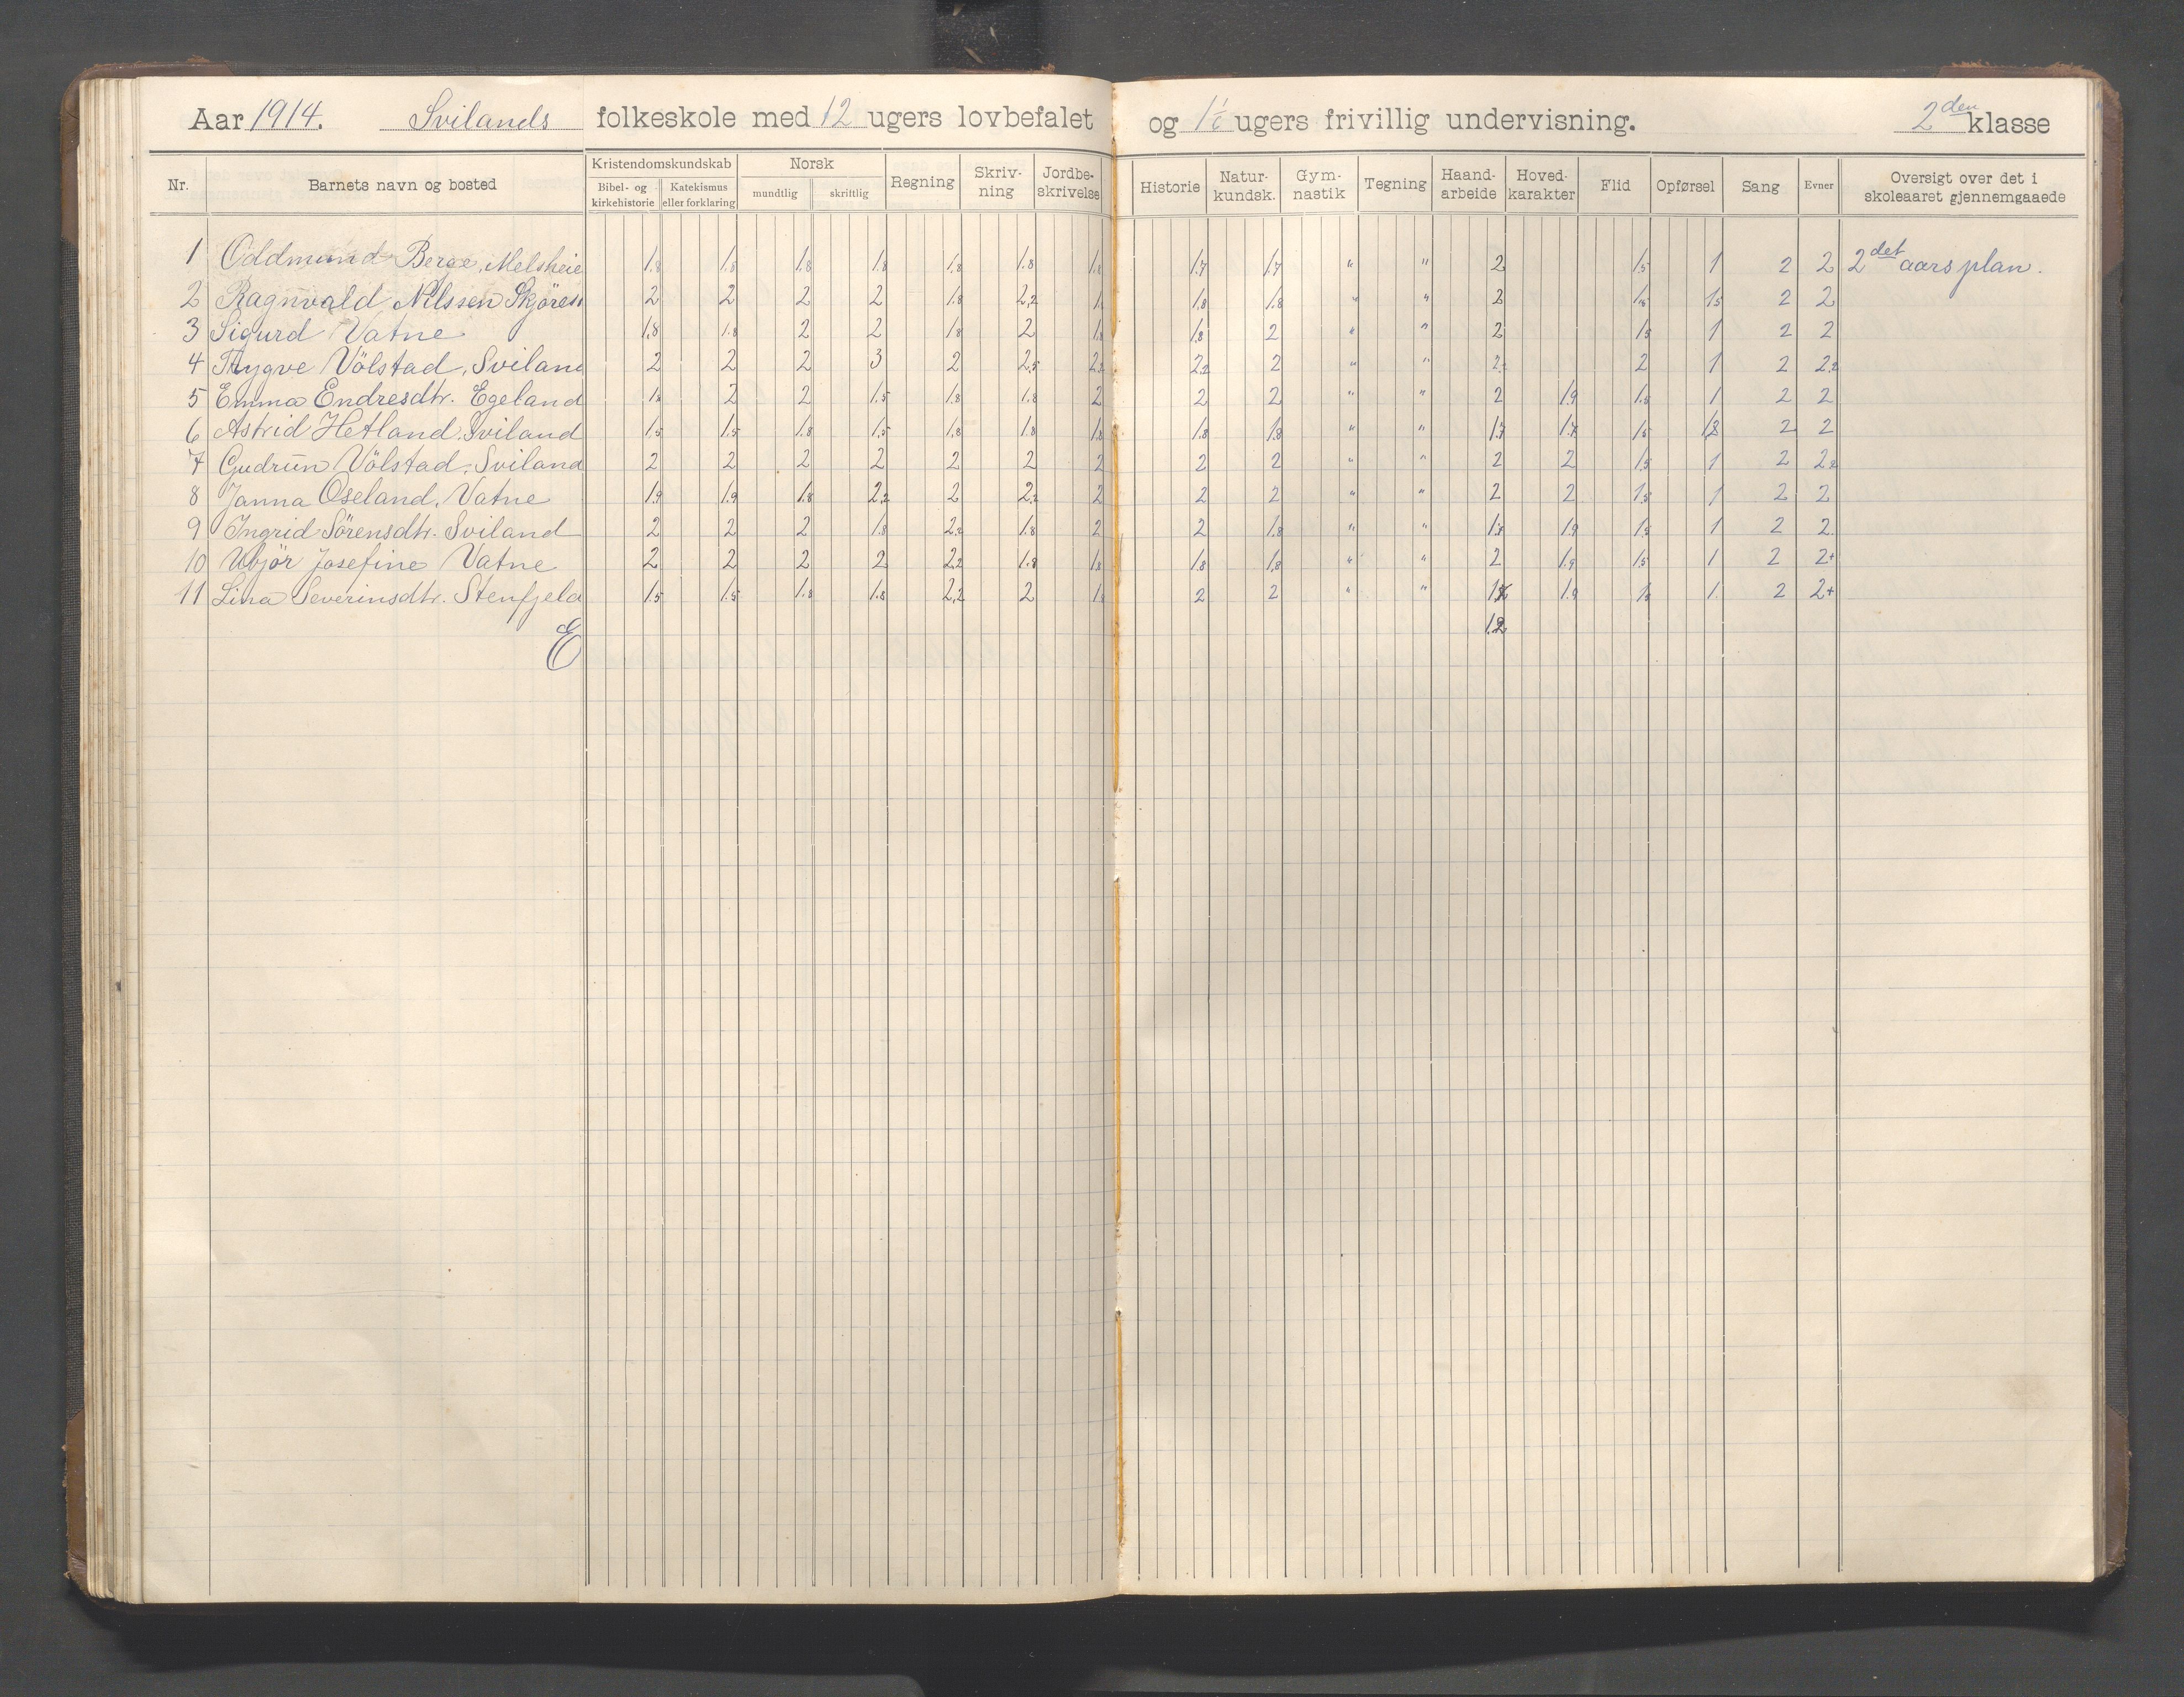 Aar 1914. Svilands folkeskole med 12 ugers lovbefalet og 1 1/6 ugers frivillig undervisning. 2den klasse
Nr. Barnets navn og bosted Kristendomskundskab Bibel- og kirkehistorie Katekismus eller forklaring Norsk mundtlig skriftlig Regning Skriv-ning Jordbe-skrivelse Historie Natur-kundsk. Gym-nastik Tegning Haand-arbeide Hoved-karakter Flid Opførsel Sang Evner Oversigt over det i skoleaaret gjennemgaaede
1 Oddmund Berge, Melsheie 1.8 1.8 1.8 1.8 1.8 1.8 1.8 1.7 1.7 " " 2 1.5 1 2 2 2det aars plan.
2 Ragnvald Nilssen Skjöres 2 2 2 2 1.8 2,2 1. 1.8 1.8 " " 2 1.5 2 2
3 Sigurd Vatne 1.8 1.8 2 2 1.8 2 1.8 1.8 2 " " 2 1.5 1 2 2
4 Trygve Völstad, Sviland 2 2 2 3 2 2,5 2,2 2,2 2 " " 2,2 2 1 2 2,2
5 Emma Endresdtr. Egeland 1.8 2 2 1.5 1.8 1.8 2 2 2 " " 2 1.9 1.5 1 2 2
6 Astrid Hetland. Sviland 1.5 1.5 1.8 1.5 1.8 1.8 1.8 1.8 1.8 " " 1.7 1.7 1.5 2 2
7 Gudrun Völstad, Sviland 2 2 2 2 2 2 2 2 2 " " 2 2 1.5 1 2 2,2
8 Janna Oseland, Vatne 1.9 1.9 1.8 2,2 2 2,2 2 2 2 " " 2 2 1.5 1 2 2
9 Ingrid Sörensdtr. Sviland 2 2 2 1.8 2,2 1.8 2 2 1.8 " " 1.8 1.9 1.5 1 2 2
10 Josefine Vatne 2 2 2 2 2,2 1.8 1.8 1.8 1.8 " " 2 1.9 1.5 1 2 2+
11 Lina Severinsdtr. Stenfjeld 1.5 1.5 1.8 1.8 2,2 2 1. 2 2 " " 1.9 1.5 1. 2 2+
E 1.2